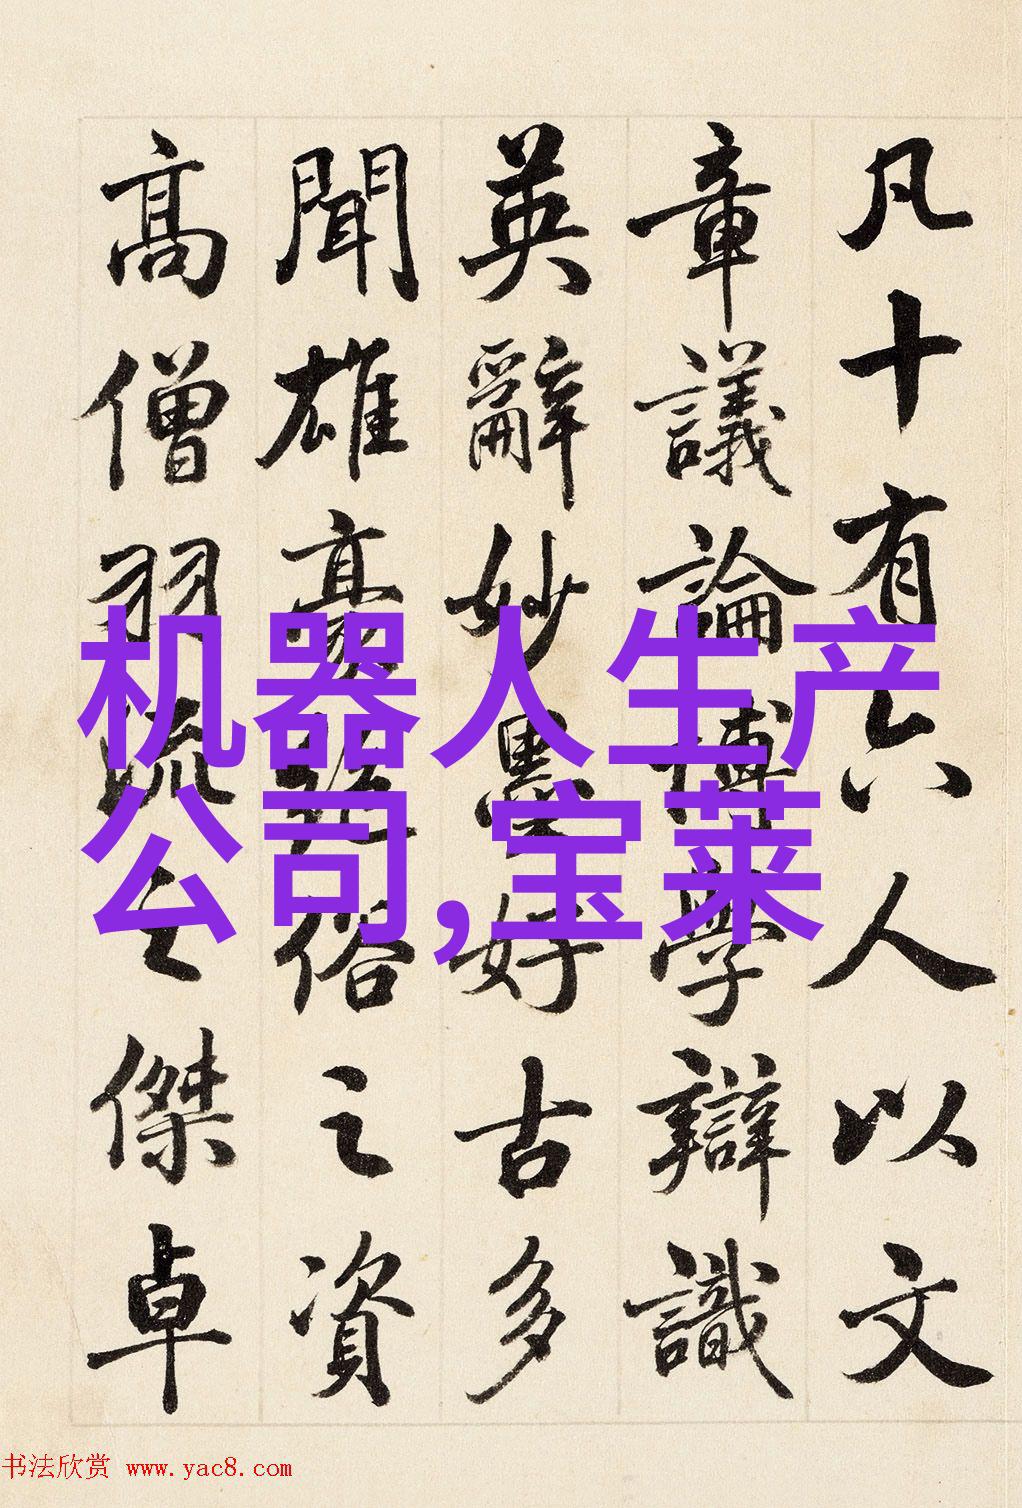 凡十有六人以文
章議論博學辯識
英辭妙墨好古多
聞雄豪絕俗之資
高僧羽流之傑卓
机器人生产
公司,宝莱
书法欣赏 www.yac8.com